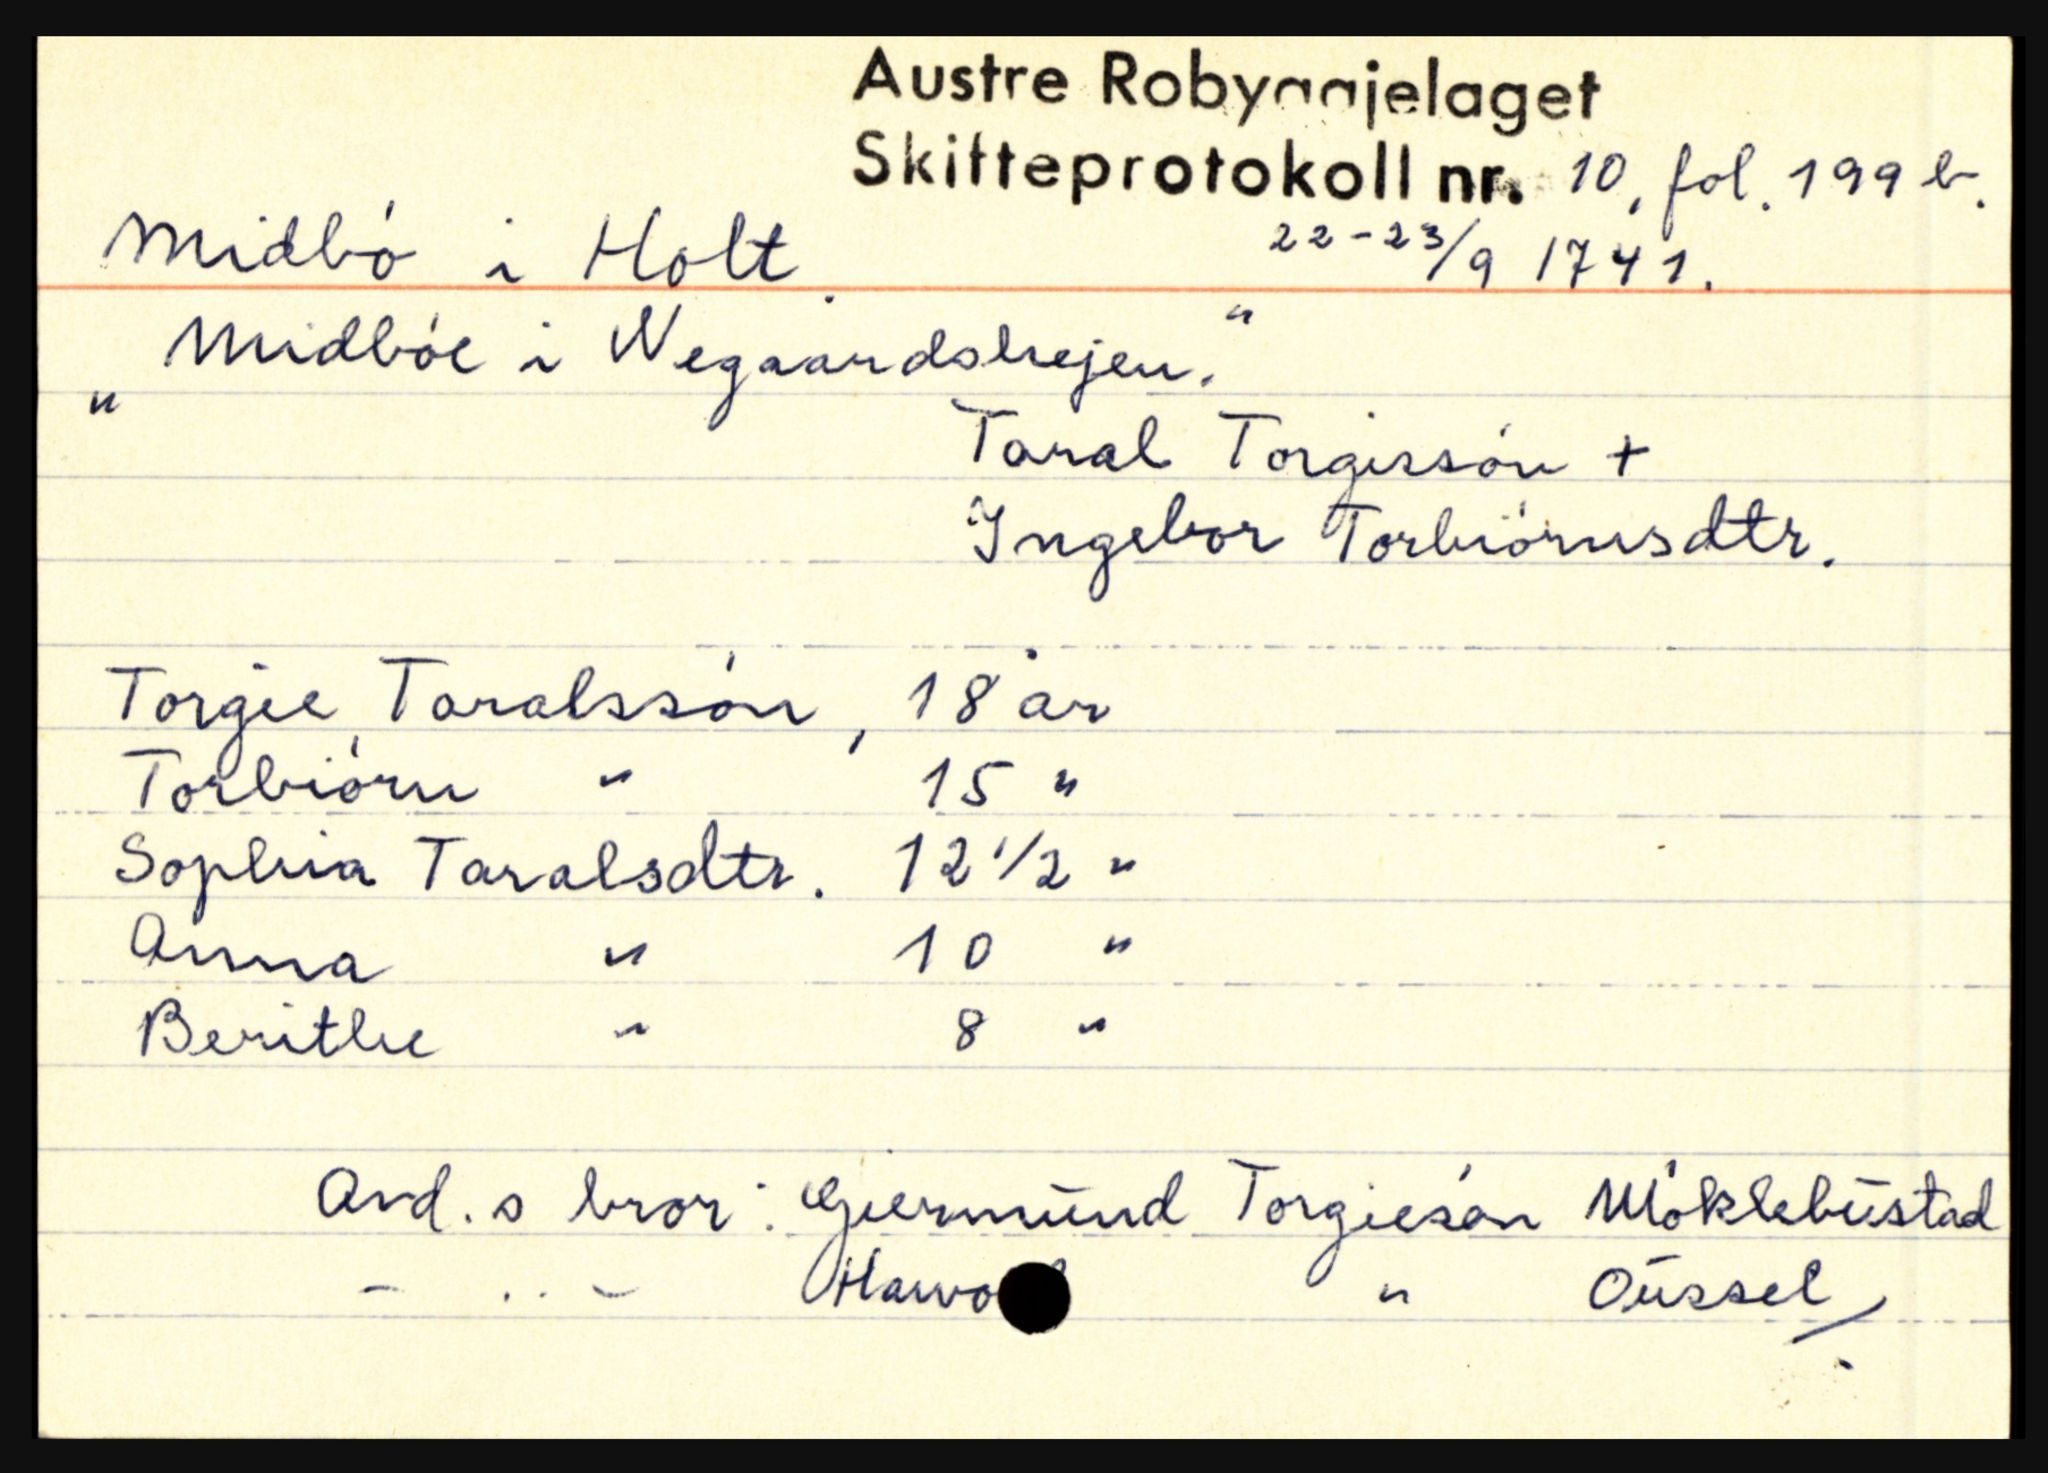 Austre Robyggjelaget
Skifteprotokoll nr. 10, fol. 199 b.
Midbó i Holt. 22-23/9 1741.
"Midbóe i Wegaardshejen."
Taral Torgiessón +
Ingebor Torbiórnsdtr.
Torgie Taralssón, 18 år
Torbiórn " 15 "
Sophia Taralsdtr. 12 1/2 "
Anna " 10 "
Berithe " 8 "
Avd. s bror: Giermund Torgiesón Móklebustad
- .. - " Oussel